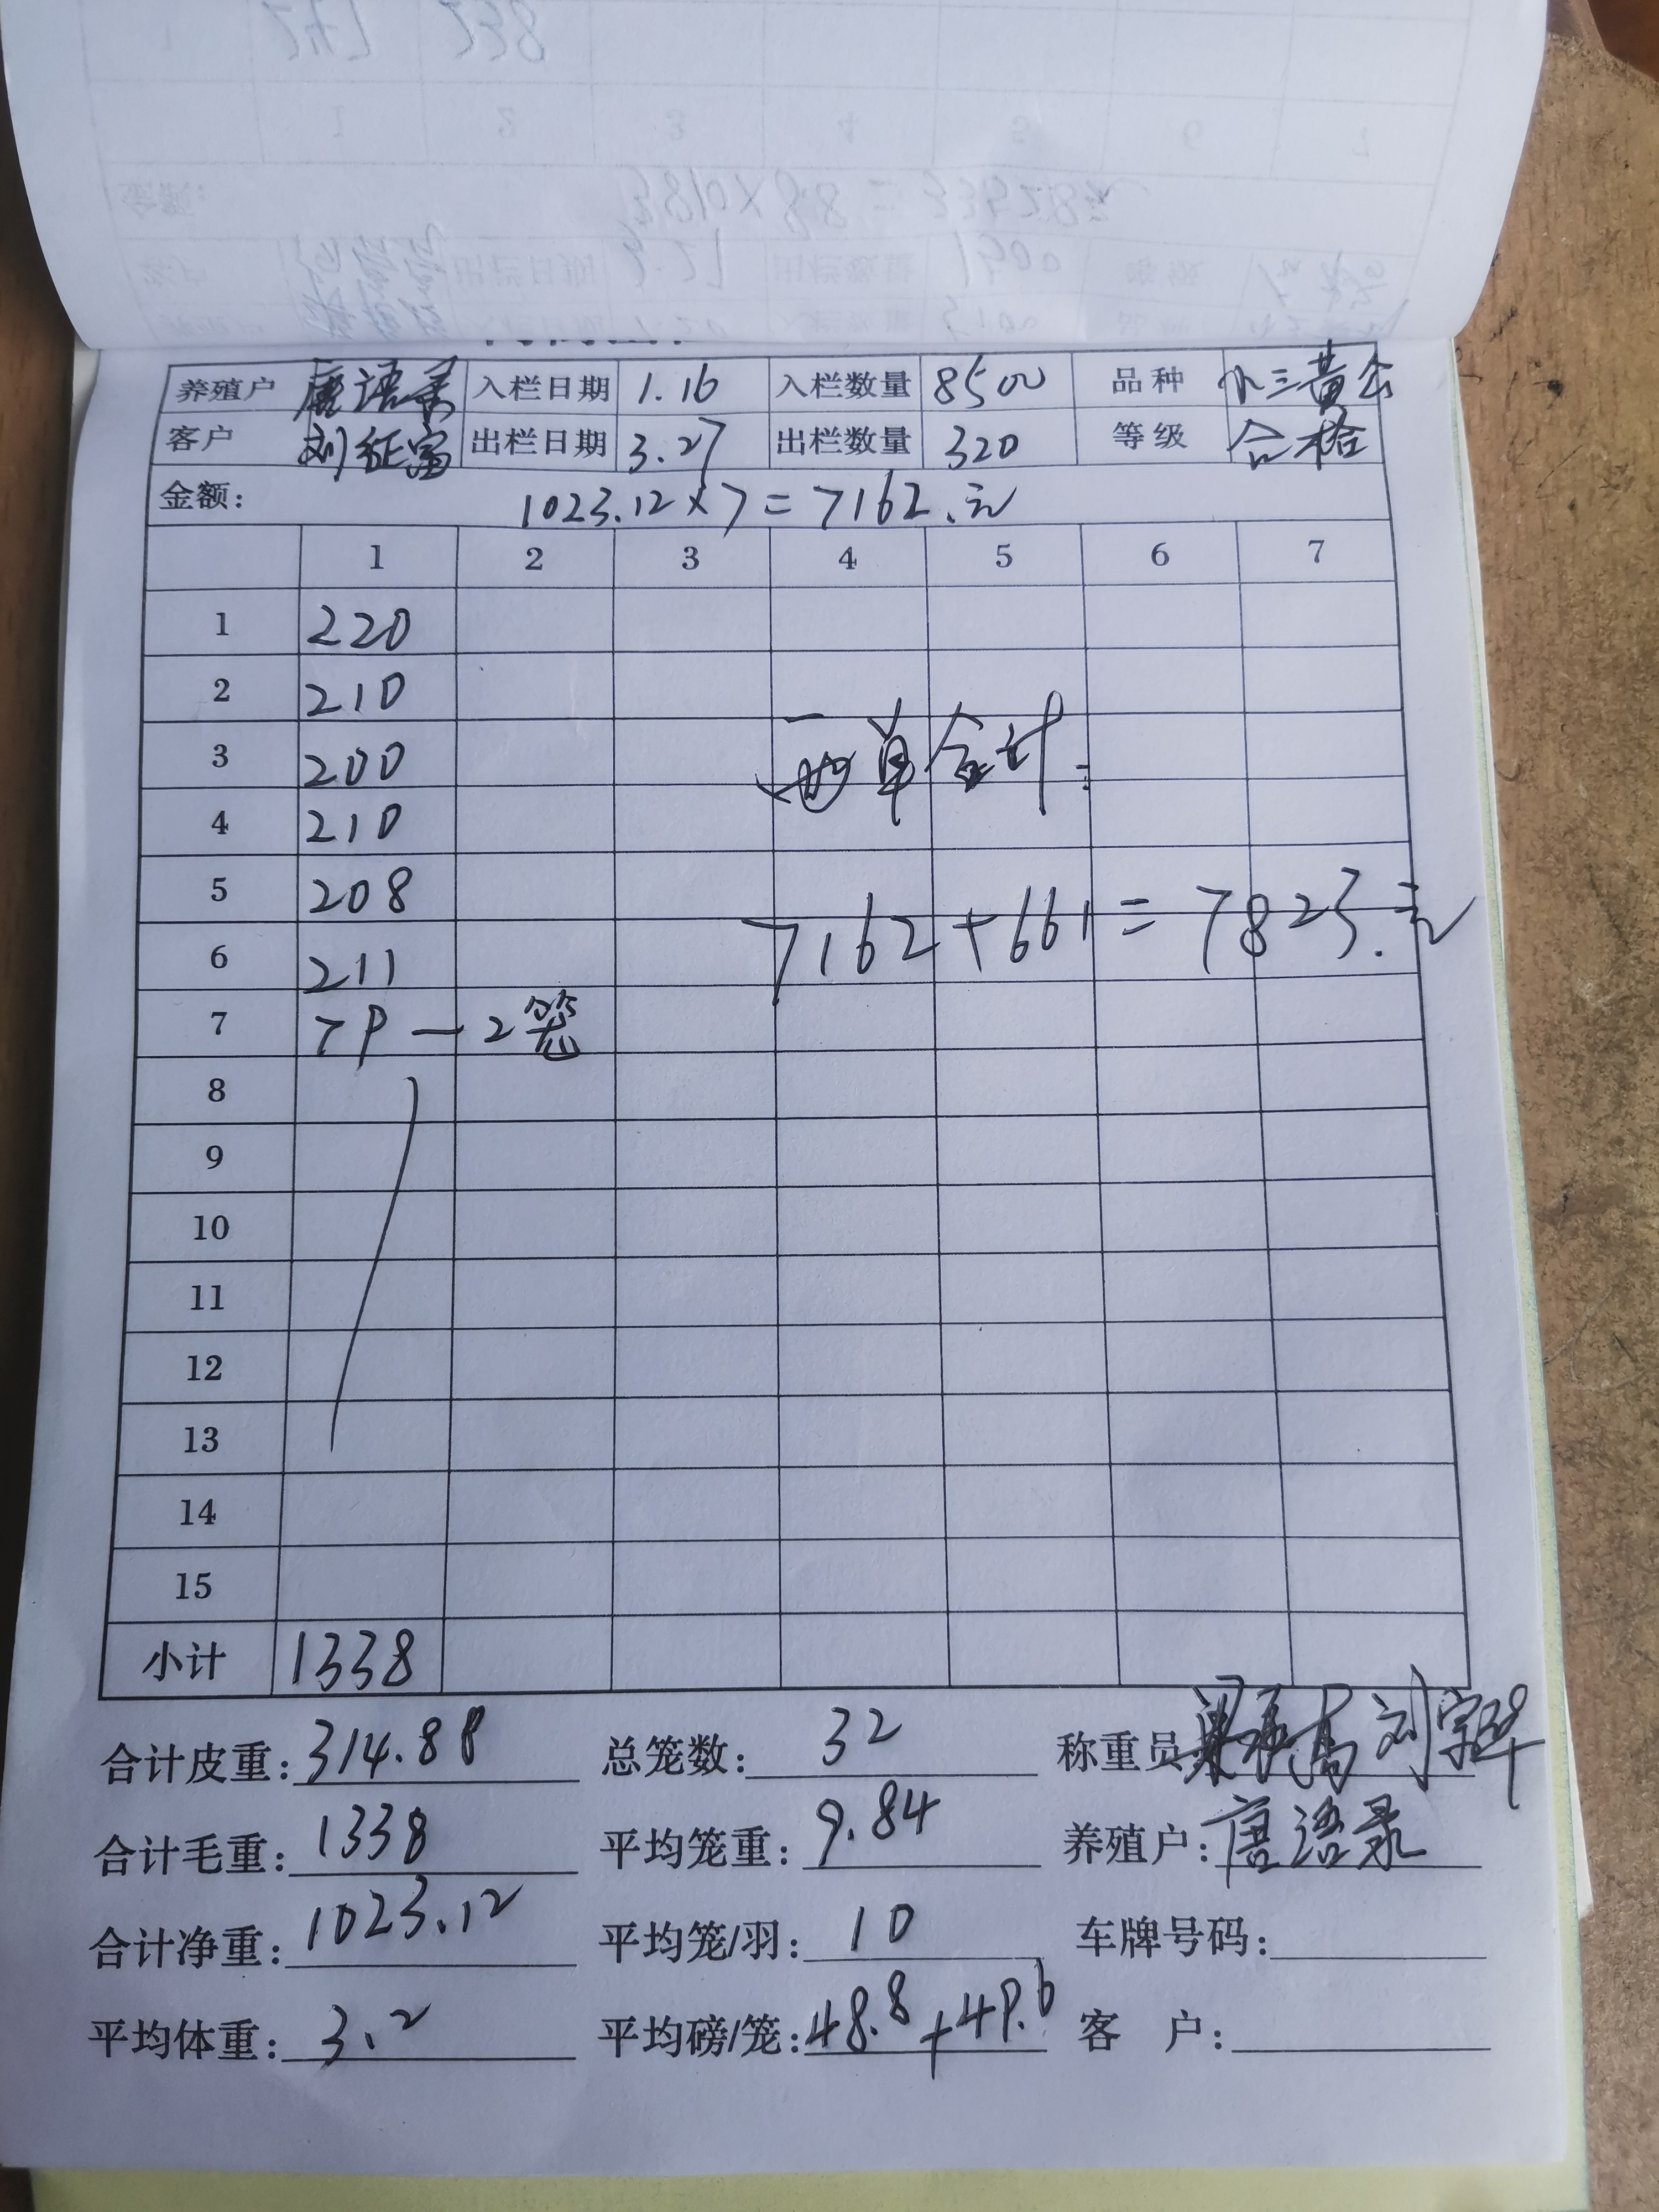 养殖户 唐语录 入栏日期 1.16 入栏数量 8500 品种 小三黄公
客户 刘征富 出栏日期 3.27 出栏数量 320 等级 合格
金额: 1023.12×7=7162.元
1 2 3 4 5 6 7
1 220
2 210
3 200 两单合计:
4 210
5 208 7162+661=7823.元
6 211
7 7P—2笼
8
9
10
11
12
13
14
15
小计 1338
合计皮重: 314.88 总笼数: 32 称重员 刘宗华
合计毛重: 1338 平均笼重: 9.84 养殖户: 唐语录
合计净重: 1023.12 平均笼/羽: 10 车牌号码:
平均体重: 3.2 平均磅/笼: 48.8+49.6 客户: